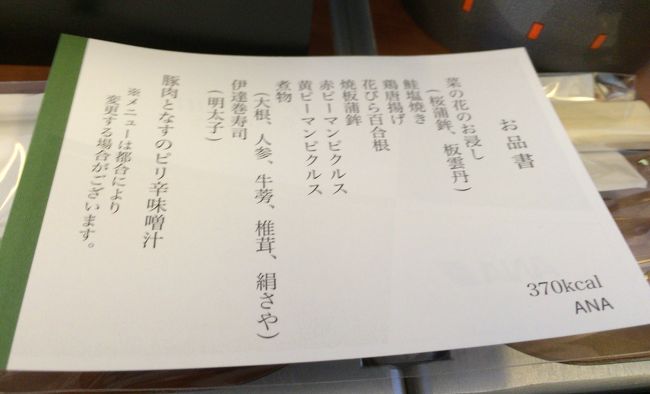 お品書
菜の花のお浸し
(桜蒲鉾、板雲丹)
鮭塩焼き
鶏唐揚げ
花びら百合根
焼板蒲鉾
赤ピーマンピクルス
黄ピーマンピクルス
煮物
(大根、人参、牛蒡、椎茸、絹さや)
伊達巻寿司
(明太子)
豚肉となすのピリ辛味噌汁
※メニューは都合により
変更する場合がございます。
370kcal
ANA